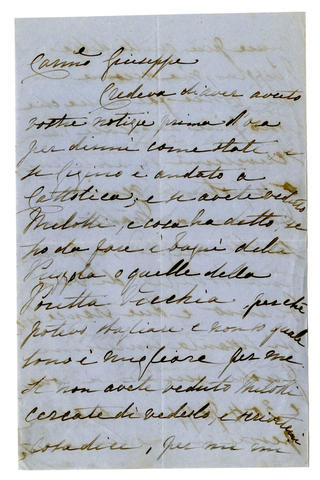 Carmo Giuseppe
Credeva di aver avuto
vostre notizie prima d'ora
per dirmi come state e
se Gigino è andato a
Cattolica, e se avete veduto
Melotti, e cosa ha detto, se
ho da fare i bagni della
o quelle della
Poretta Vecchia, perchè
potrei sbagliare e non so quale
sono è migliore per me
se non avete veduto Melotti
cercate di vederlo, e
cosa dice, per me mi